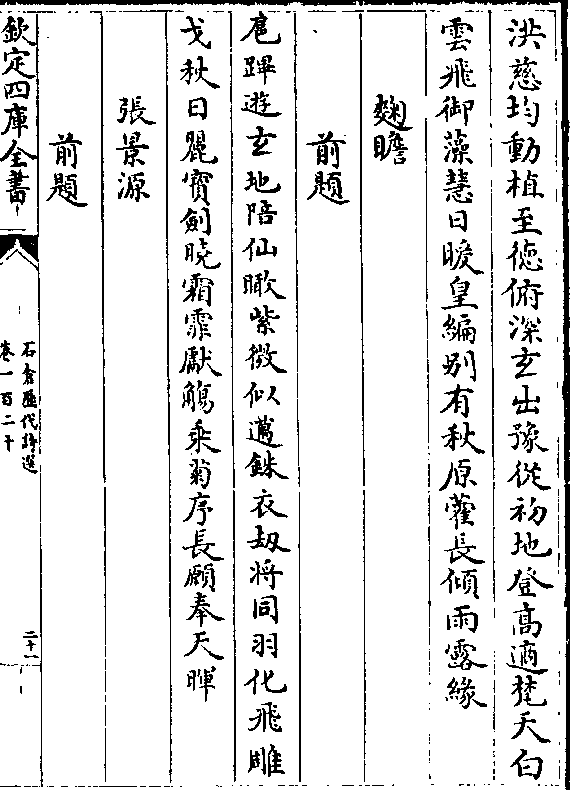 洪慈均動植至德俯深玄出豫從初地登高適梵天白
雲飛御藻慧日暖皇編别有秋原藿長傾雨露緣
麴瞻
前題
扈蹕遊玄地陪仙瞰紫微似邁銖衣劫将同羽化飛雕
戈秋日麗寳劍曉霜霏獻觴乘菊序長願奉天暉
張景源
前題
欽定四庫全書
石倉歷代詩選
卷一百二十
二十一